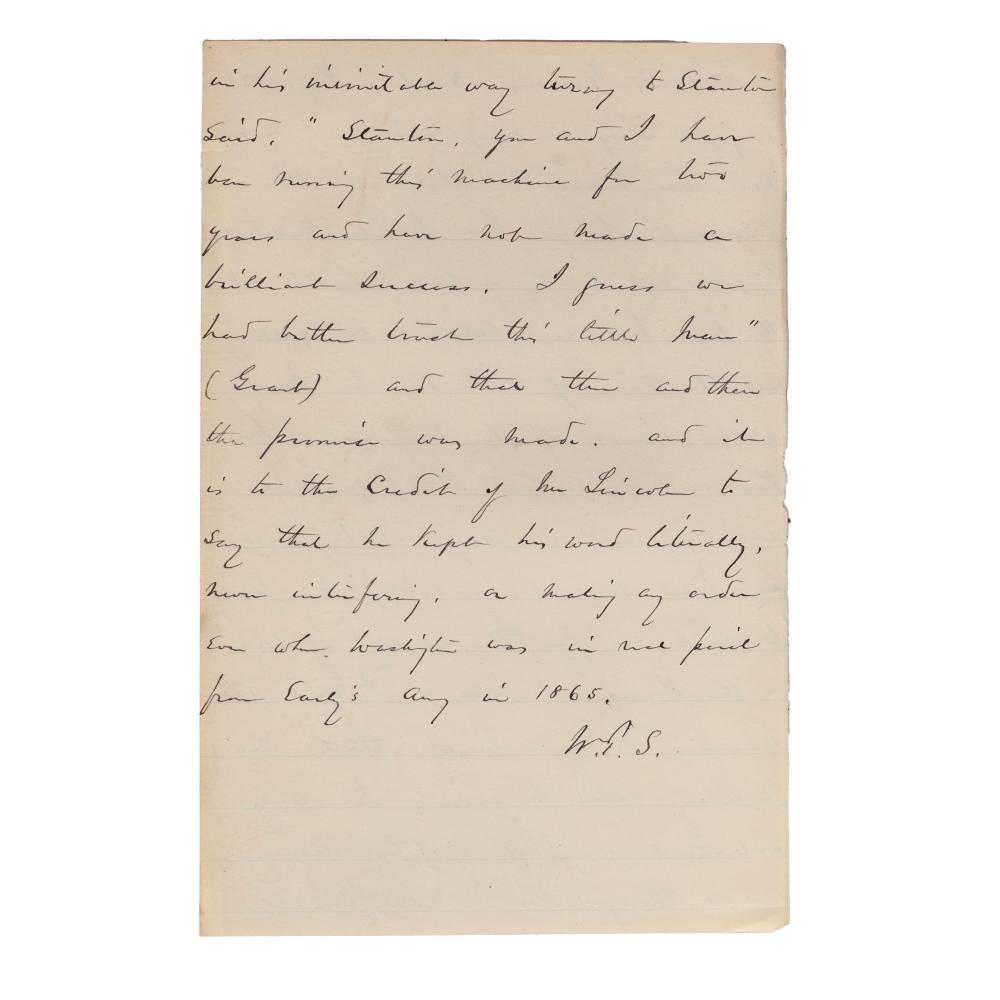 in his inimitable way turning to Stanton
Said, " Stanton, you and I have
been running this machine for two
years and have not made a
brilliant success. I guess we
had better trust this little man"
(Grant) and that then and there
the promise was made. and it
is to the Credit of Mr Lincoln to
say that he Kept his word literally,
never interfering, or making any order
Even when Washington was in real peril
from Early's Army in 1865.
W.T. S.